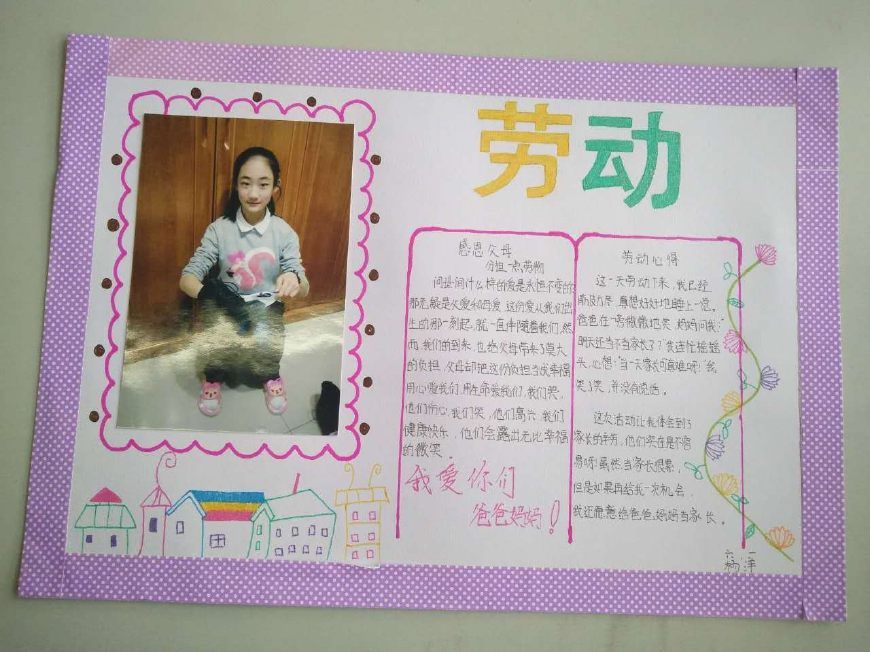 劳动
感恩父母
分担一点劳物
问世间什么样的爱是永恒不变的
那无疑是父爱和母爱 这份爱从我们出
生的那一刻起，就一直伴随着我们，然
而，我们的到来，也给父母带来了莫大
的负担，父母却把这份负担当成幸福
用心爱我们，用生命爱我们，我们哭，
他们伤心，我们笑，他们高兴，我们
健康快乐，他们会露出无比幸福
的微笑。
我爱你们
爸爸妈妈！
劳动心得
这一天劳动下来，我已经
筋疲力尽 真想好好地睡上一觉，
爸爸在一旁微微地笑 妈妈问我：“
明天还当不当家长了？”我连忙摇摇
头，心想：“当一天家长可真难呀！”我
笑了笑，并没有说话。
这次活动让我体会到了
家长的辛苦，他们实在是不容
易呀！虽然当家长很累，
但是如果再给我一次机会，
我还愿意给爸爸、妈妈当家长。
六 一